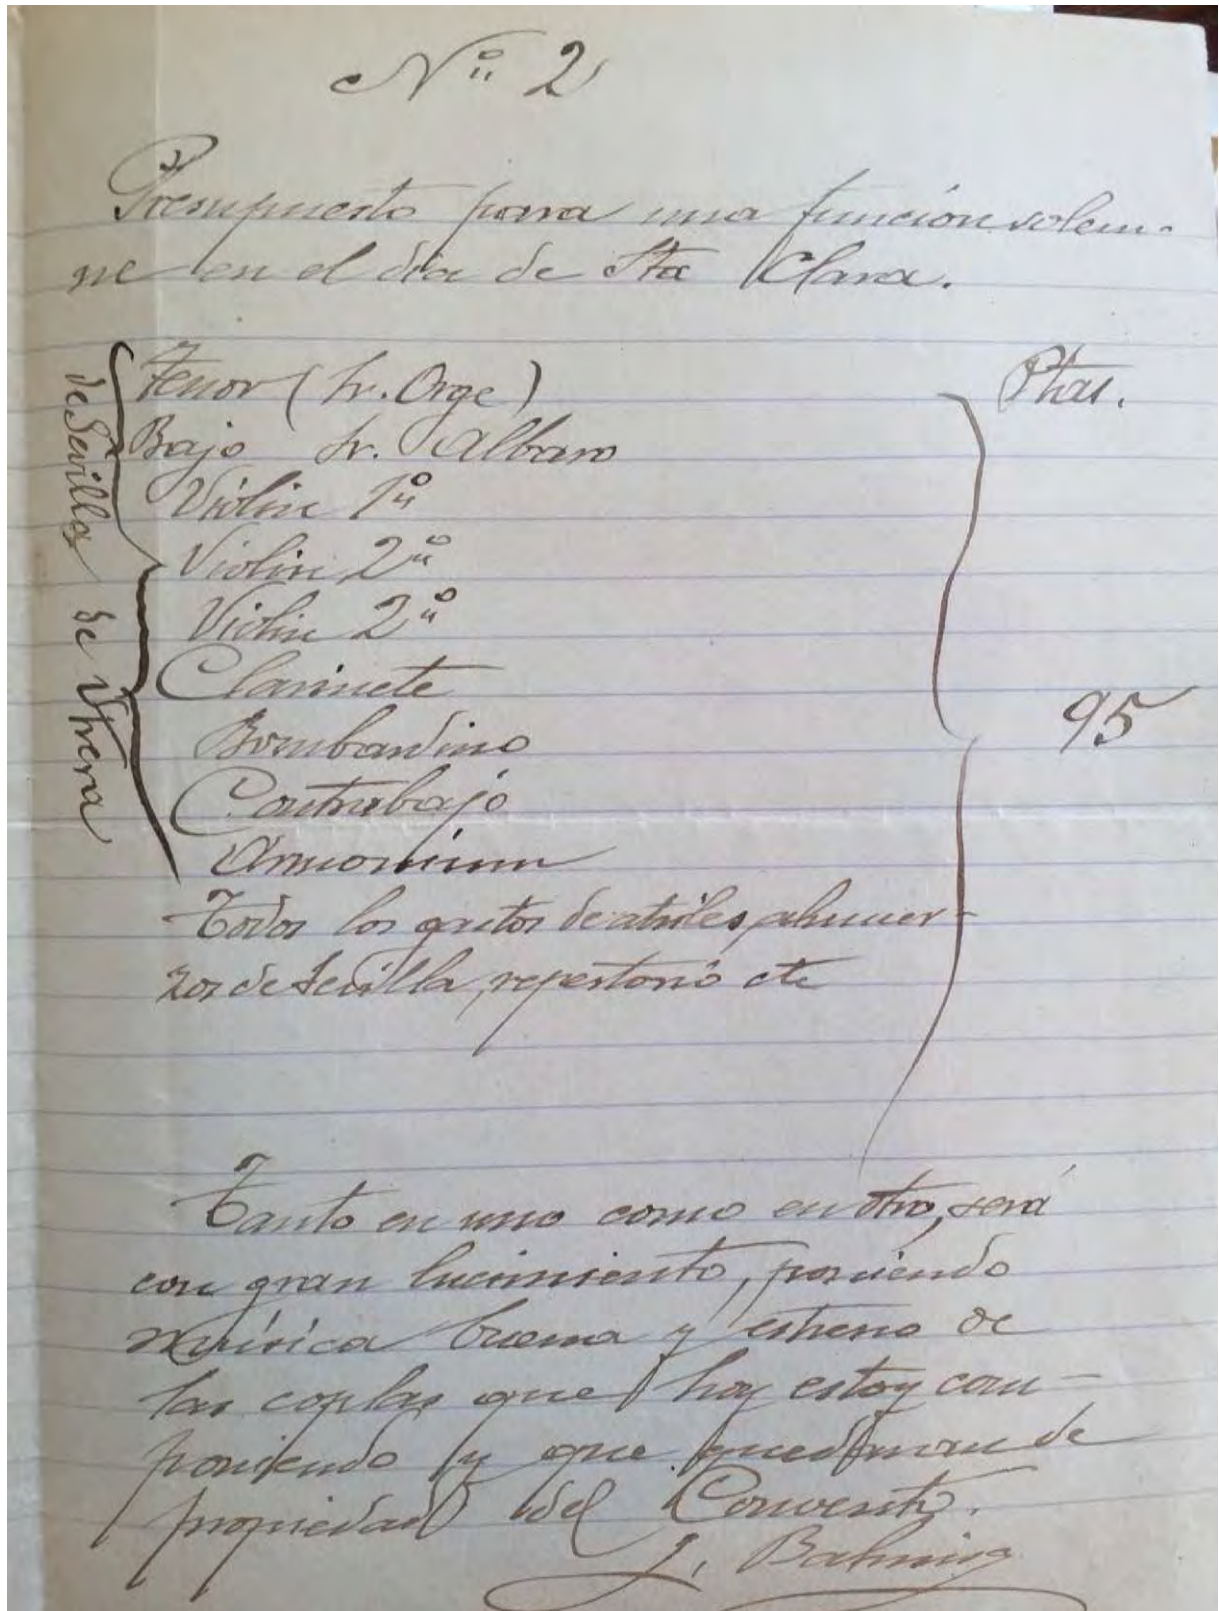 Nº 2
Presupuesto para una función solem-
ne en el día de Sta Clara.
Ptas.
de Sevilla
Tenor (Sr. Orge)
Bajo Sr. Albaro
Violin 1º
Violin 2º
Violin 2º
de Utrera
Clarinete
Bombardino
Contrabajo
Armonium
95
Todos los gastos de atriles, almuer-
zos de Sevilla, repertorio etc
Tanto en uno como en otro, será
con gran lucimiento, poniendo
música buena y estreno de
las coplas que hoy estoy com-
poniendo y que quedaran de
propiedad del Convento.